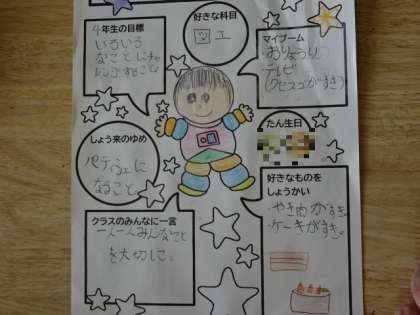 4年生の目標
いろいろ
なことにチャ
レンジすること
好きな科目
図工
マイブーム
・おりょうり
テレビ
しょう来のゆめ
パティシエに
なること。
たん生日
クラスのみんなに一言
一人一人みんなのこと
を大切に。
好きなものを
しょうかい
・やき肉がすき。
・ケーキがすき。